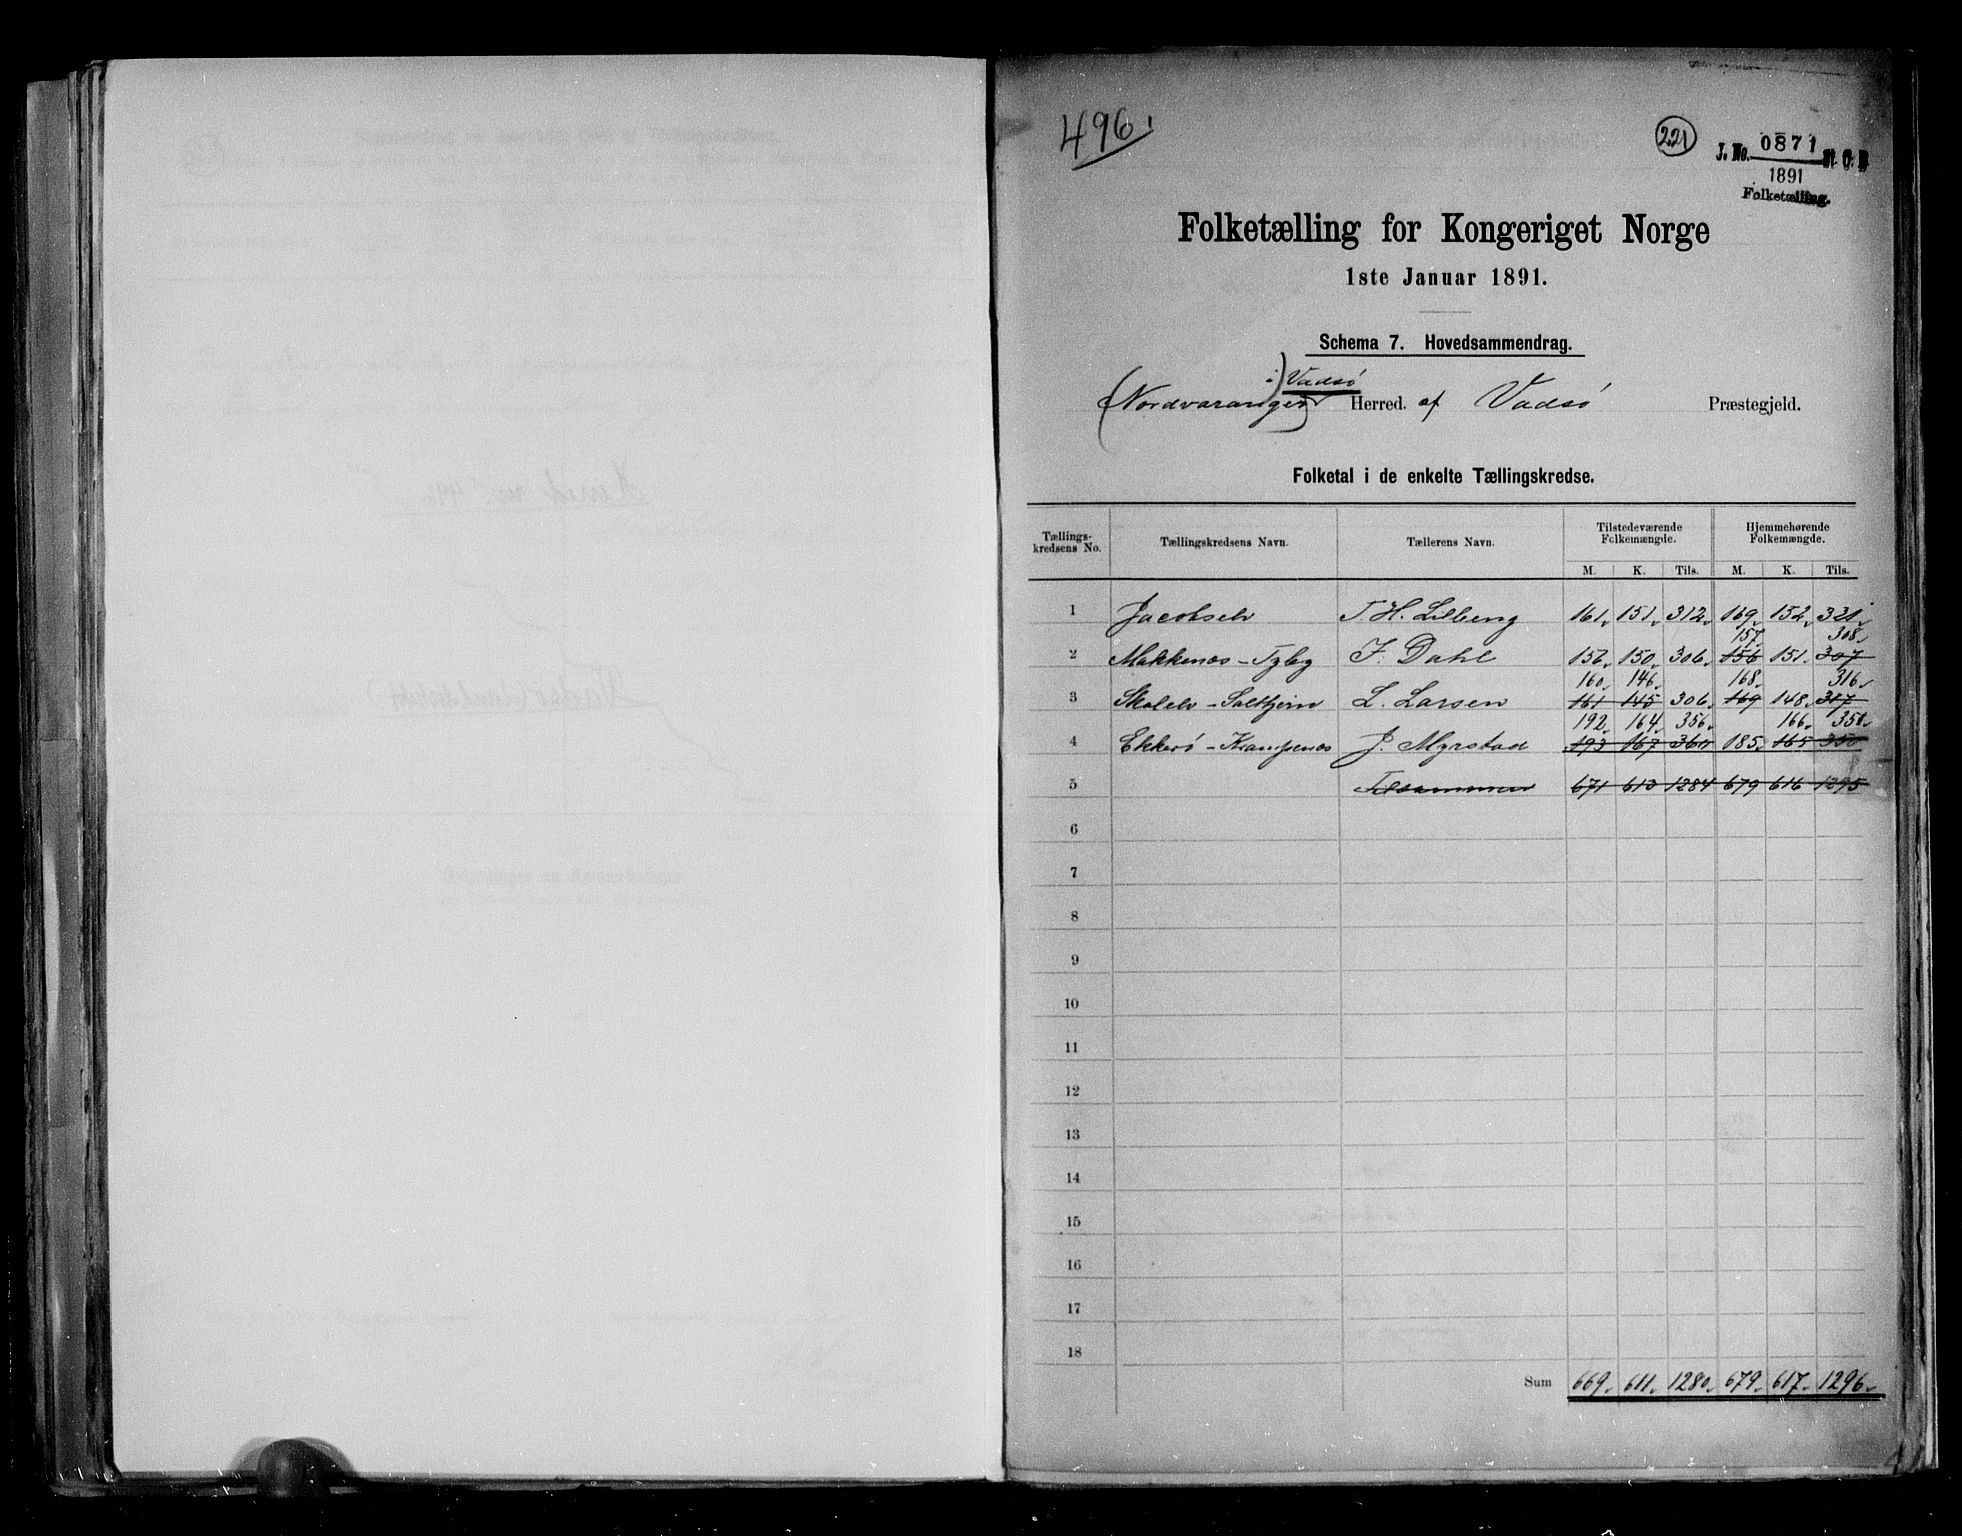 496.
221
J. No. 0871 St. C. B
1891
Folketælling.
Folketælling for Kongeriget Norge
1ste Januar 1891.
Schema 7. Hovedsammendrag.
i) Vadsö
(Nordvaranger) Herred. af Vadsö Præstegjeld.
Folketal i de enkelte Tællingskredse.
Tællings-kredsens No. Tællingskredsens Navn. Tællerens Navn. Tilstedeværende Folkemængde. Hjemmehørende Folkemængde.
M. K. Tils. M. K. Tils.
1 Jacobselv T. H. Lilbeng 161 151 312 169 152 321
157 308
2 Makkenæs - Tyby F. Dahl 156 150 306 156 151 307
160 146 168 316
3 Skolelv - Saltjern L. Larsen 161 145 306 169 148 317
192 164 356 166 350
4 Ekkerö - Krampenæs J. Myrstad 193 167 360 185 165 350
5 Tilsammen 671 613 1284 679 616 1295
6
7
8
9
10
11
12
13
14
15
16
17
18
Sum 669 611 1280 679 617 1296